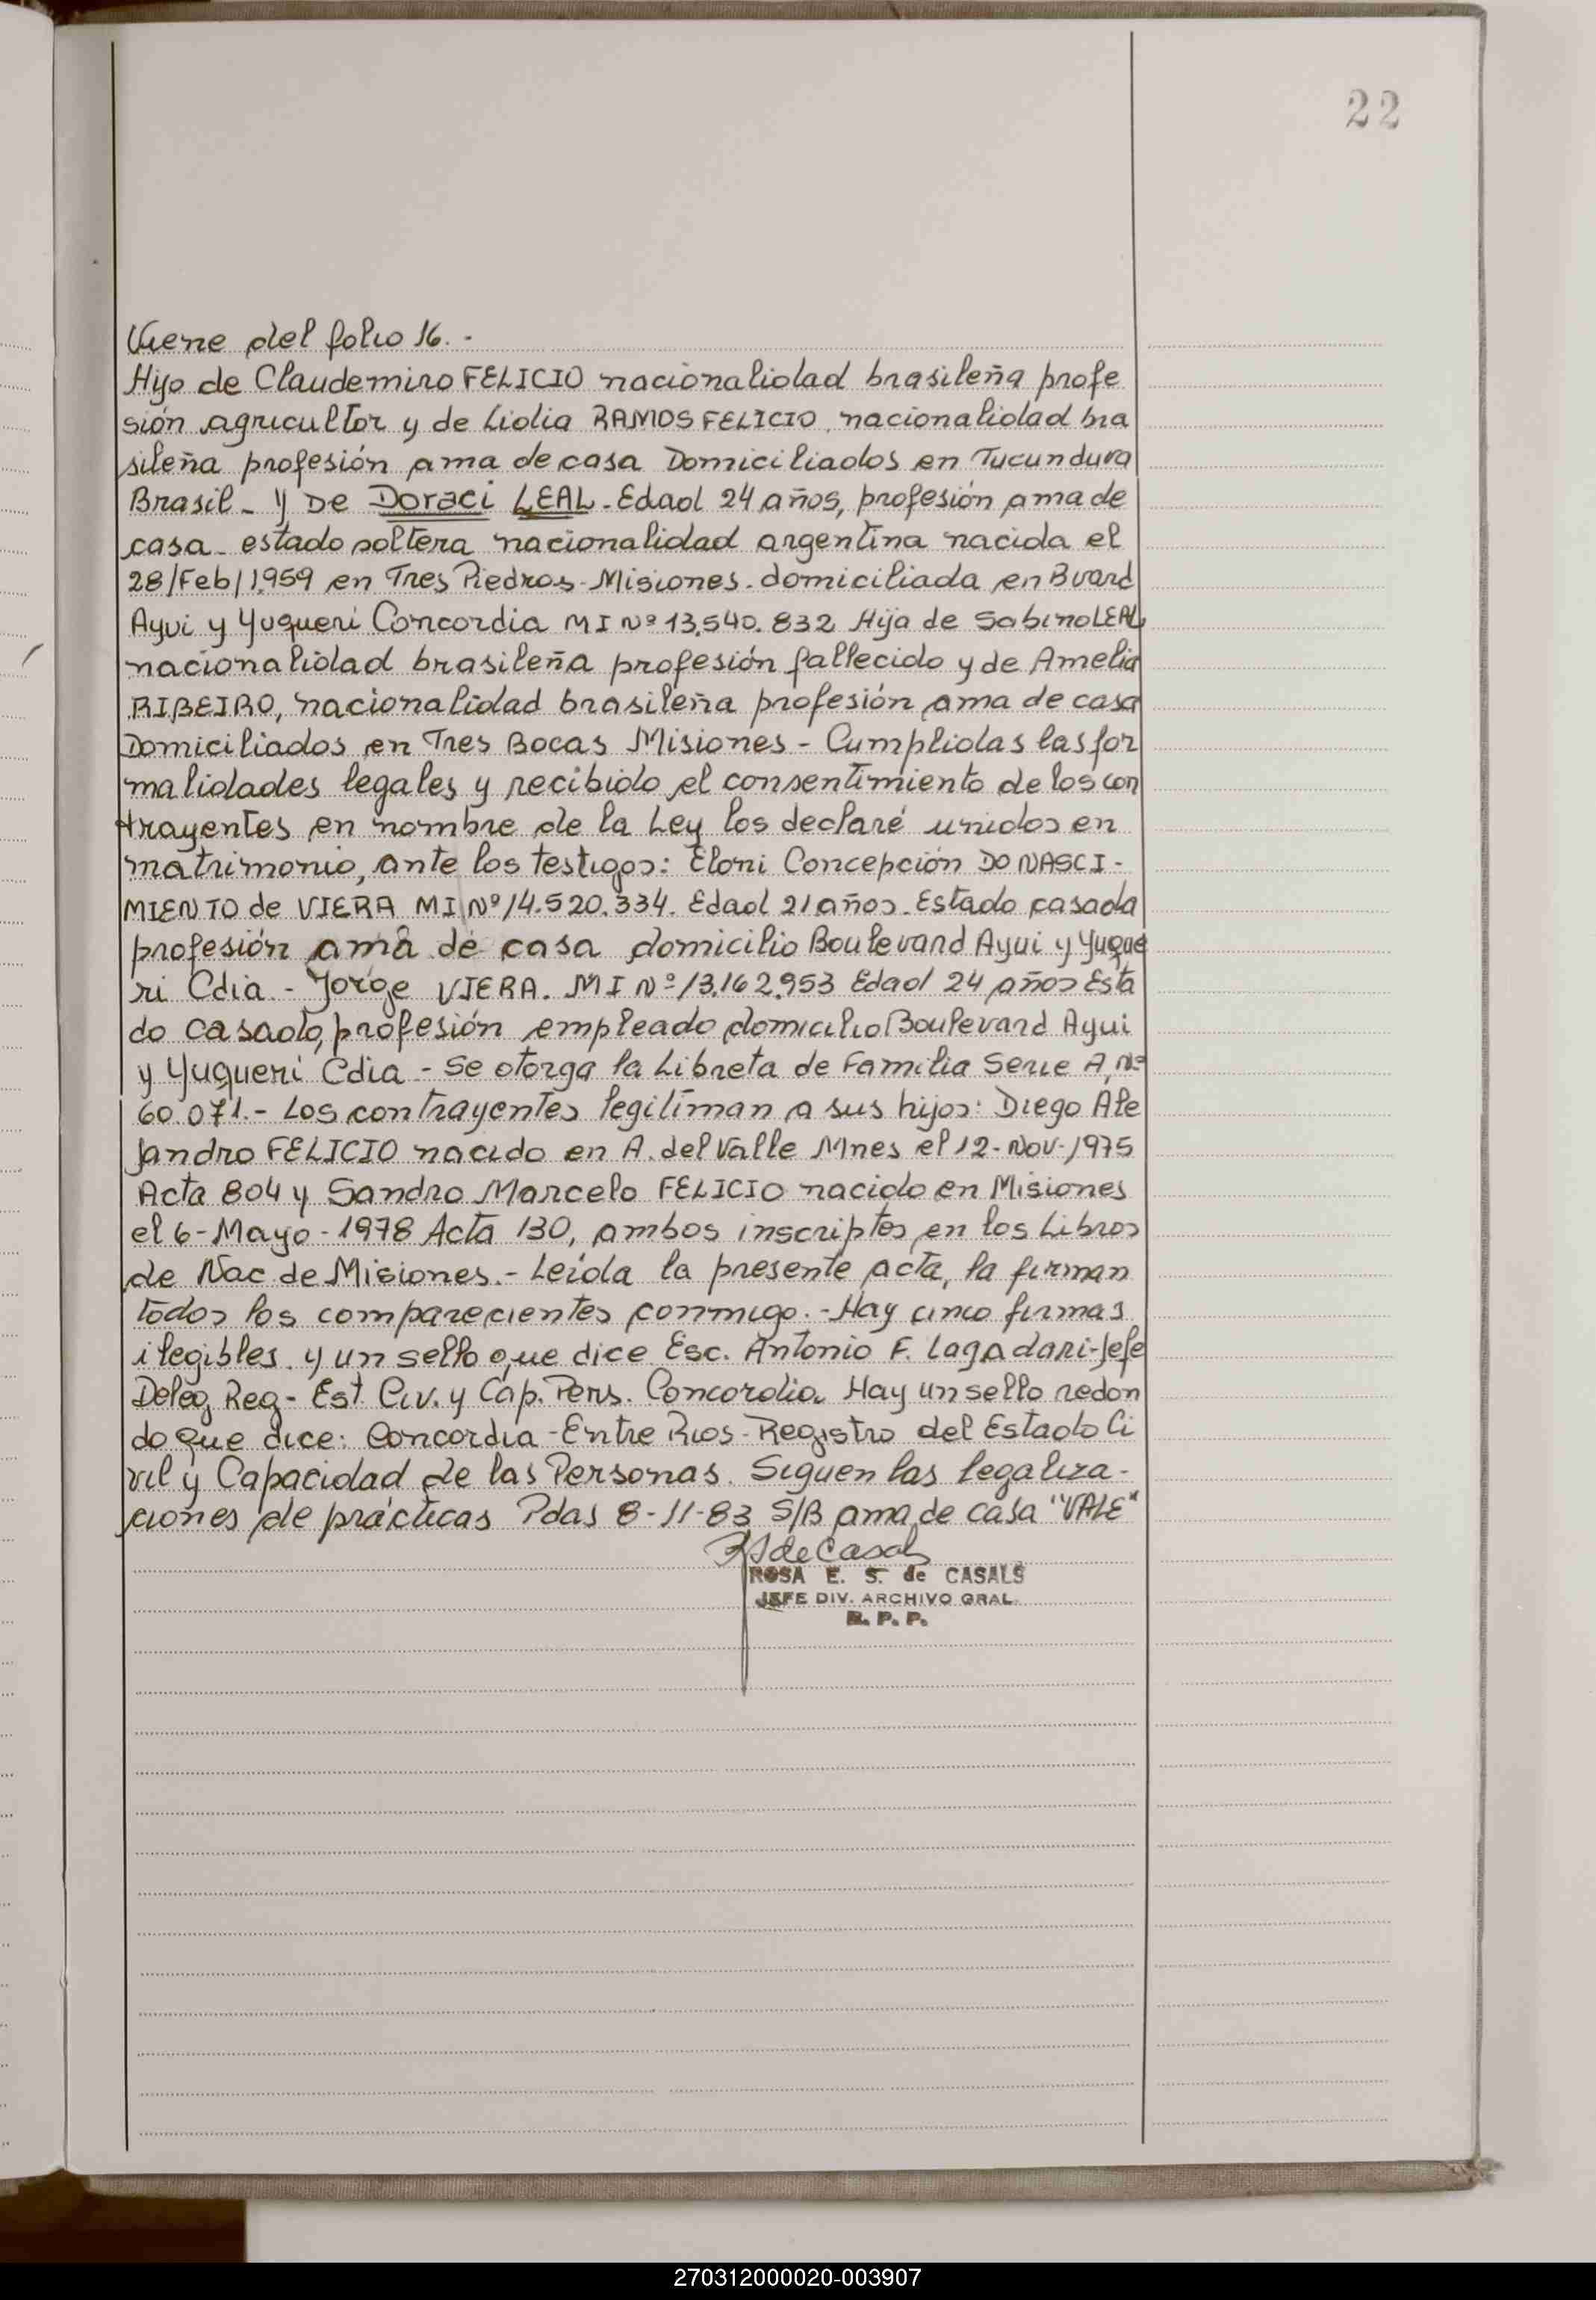 22
Viene del folio 16. -
Hijo de Claudemiro FELICIO nacionalidad brasileña profe
sión agricultor y de Lidia RAMOS FELICIO, nacionalidad bra
sileña profesión ama de casa Domiciliados en Tucunduva
Brasil - y De Doraci LEAL - Edad 24 años, profesión ama de
casa - estado soltera nacionalidad argentina nacida el
28/Feb/1.959 en Tres Piedros - Misiones - domiciliada en Bvard
Ayui y Yuqueri Concordia MI Nº 13.540.832 Hija de Sabino LEAL
nacionalidad brasileña profesión fallecido y de Amelia
RIBEIRO, nacionalidad brasileña profesión ama de casa
Domiciliados en Tres Bocas Misiones - Cumplidas las for
malidades legales y recibido el consentimiento de los con
trayentes en nombre de la Ley los declaré unidos en
matrimonio, ante los testigos: Eloni Concepción DO NASCI -
MIENTO de VIERA MI Nº 14.520.334. Edad 21 años - Estado casada
profesión ama de casa domicilio Boulevard Ayui y Yuque
ri Cdia - Jorge VIERA. MI Nº 13.162.953 Edad 24 años Esta
do casado, profesión empleado domicilio Boulevard Ayui
y Yuqueri Cdia - Se otorga la Libreta de Familia Serie A, Nº
60.071. - Los contrayentes legitiman a sus hijos: Diego Ale
jandro FELICIO nacido en A. del Valle Mnes el 12 - Nov - 1975
Acta 804 y Sandro Marcelo FELICIO nacido en Misiones
el 6 - Mayo - 1978 Acta 130, ambos inscriptos en los Libros
de Nac de Misiones. - Leida la presente acta, la firman
todos los comparecientes conmigo. - Hay cinco firmas
ilegibles y un sello que dice Esc. Antonio F. Lagadari - Jefe
Deleg Reg - Est. Civ. y Cap. Pers. Concordia Hay un sello redon
do que dice: Concordia - Entre Rios - Registro del Estado Ci
vil y Capacidad de las Personas. Siguen las legaliza -
ciones de prácticas Pdas 8 - 11 - 83 S/B ama de casa "VALE"
RSdeCasals
ROSA E. S. de CASALS
JEFE DIV. ARCHIVO GRAL.
R. P. P.
270312000020-003907